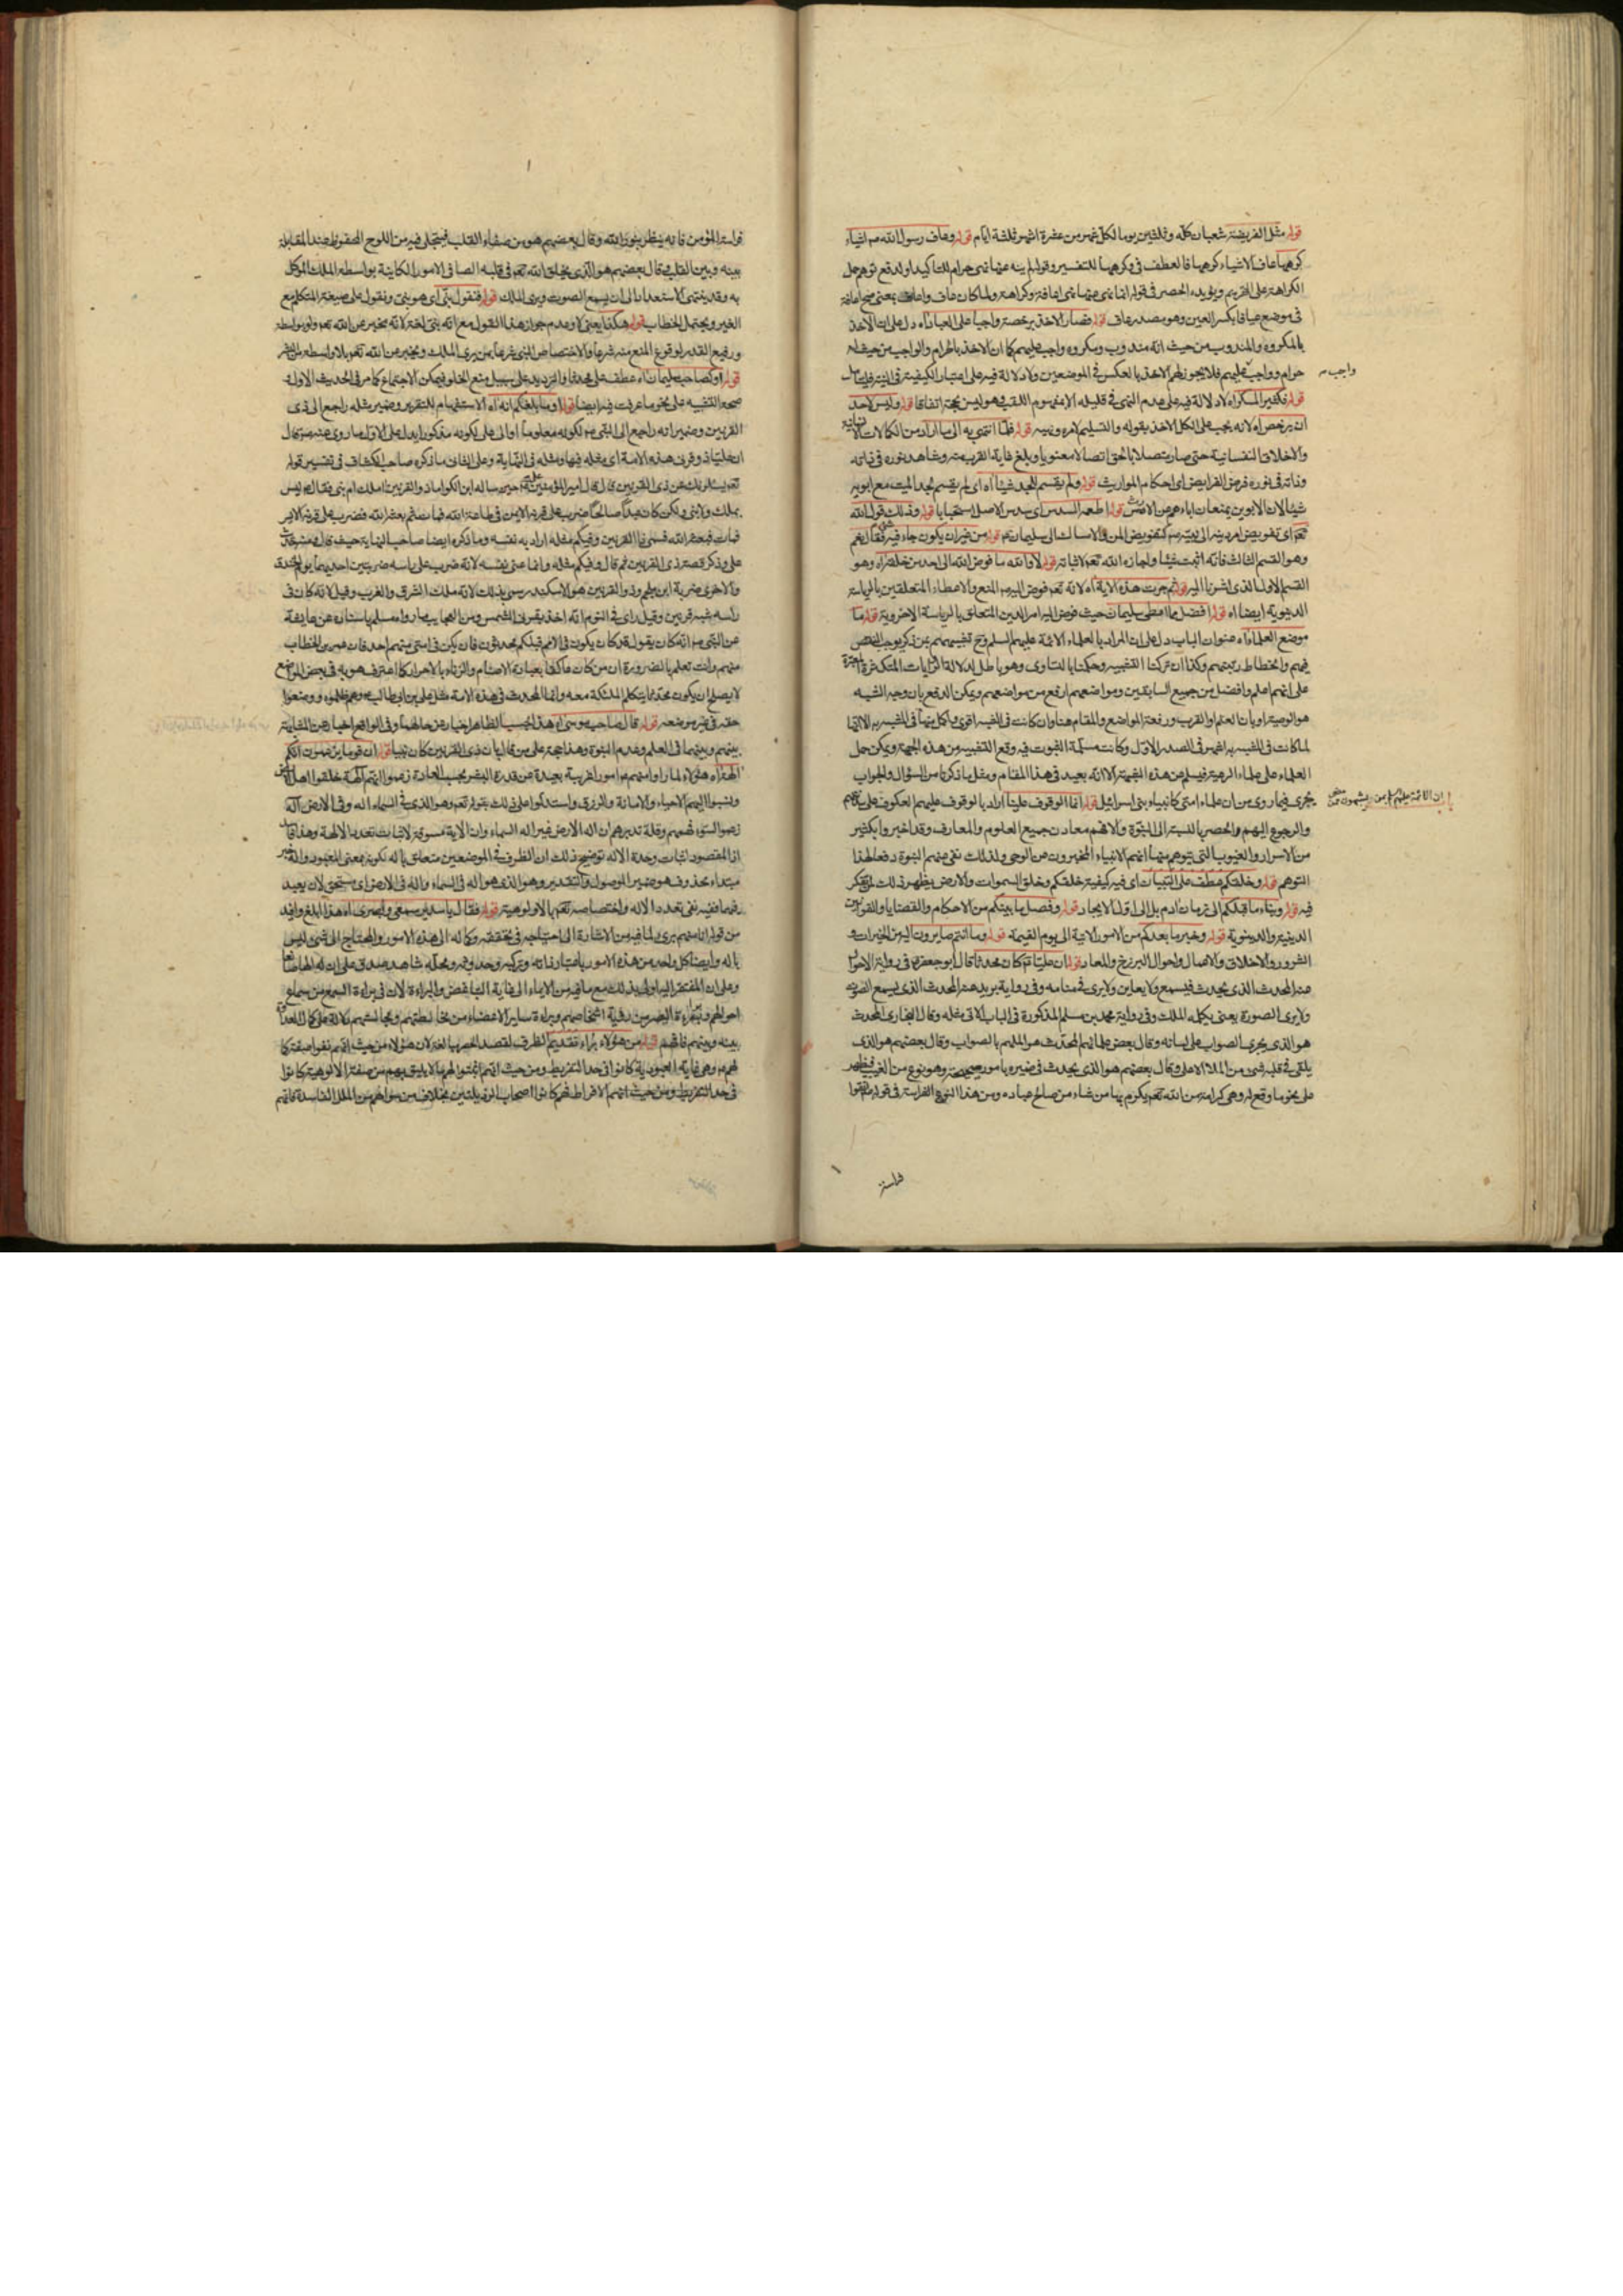 قوله مثل الفريضة شعبان كله وثلثين يوما لكل شهر من عشرة اشهر ثلثة ايام قوله وعاف رسول الله ص اشياء
كرهها عاف الاشياء كرهها فالعطف في وكرهها للتفسير وقوله لم ينه عنها نهى حرام للتاكيد او لدفع توهم حمل
الكراهة على التحريم ويؤيده الحصر في قوله انما نهى عنها نهى اعافة وكراهة ولما كان عاف واعاف بمعنى صح اعافة
في موضع عيافا بكسر العين وهو مصدر عاف قوله فصار الاخذ برخصه واجبا على العباد اه دل على ان الاخذ
بالمكروه والمندوب من حيث انه مندوب ومكروه واجب عليهم كما ان الاخذ بالحرام والواجب من حيث انه
حرام وواجب عليهم فلا يجوز لهم الاخذ بالعكس في الموضعين ولا دلالة فيه على اعتبار الكيفية في النية
واجب
قوله فكثير المسكر اه لا دلالة فيه على عدم النهى في قليله الا بمفهوم اللقب وهو ليس بحجة اتفاقا قوله وليس لاحد
ان يرخص اه لانه يجب على الكل الاخذ بقوله والتسليم لامره ونهيه قوله فلما انتهى به الى ما اراد من الكمالات
والاخلاق النفسانية حتى صار متصلا بالحق اتصالا معنويا وبلغ غاية القرب منه وشاهد نوره في ذاته
وذاته في نوره فرض الفرايض اى احكام المواريث قوله ولم يقسم للجد شيئا اه اى لم يقسم لجد الميت مع ابويه
شيئا لان الابوين يمنعان اباءهم عن الارث قوله اطعمه السدس اى سدس الاصل استحبابا قوله وذلك قول الله
تعم اى تفويض امر دينه الى نبيه ص كتفويض المن والامساك الى سليمان ع قوله من غير ان يكون جاء فيه شئ فقال نعم
وهو القسم الثالث فانه اثبت شيئا واجازه الله تعم لاثباته قوله لا والله ما فوض الله الى احد من خلقه اه وهو
القسم الاول الذى اشرنا اليه قوله ثم جرت هذه الاية اه لانه تعم فوض اليه ص المنع والاعطاء المتعلقين بالرياسة
الدنيوية ايضا اه قوله افضل مما اعطى سليمان حيث فوض اليه امر الدين المتعلق بالرياسة الاخروية قوله ما
موضع العلماء اه عنوان الباب دل على ان المراد بالعلماء الائمة عليهم السلم وح تشبيههم بمن ذكر يوجب النقص
فيهم وانحطاط رتبتهم وكذا ان تركنا التشبيه وحكمنا بالتساوى وهو باطل لدلالة الروايات المتكثرة
على انهم اعلم وافضل من جميع السابقين ومواضعهم ارفع من مواضعهم ويمكن الدفع بان وجه الشبه
هو الوصية او بان العلم والقرب ورفعة المواضع والمقام هنا وان كانت في المشبه اقوى واكمل منها في المشبه به الا انها
لما كانت في المشبه به اشهر في الصدر الاول وكانت مسلمة الثبوت فيه وقع التشبيه من هذه الجهة ويمكن حمل
العلماء على علماء الرعية فيسلم من هذه الشبهة الا انه بعيد في هذا المقام ومثل ما ذكرنا من السؤال والجواب
يجرى فيما روى من ان علماء امتى كانبياء بنى اسرائيل قوله انما الوقوف علينا اراد بالوقوف عليهم العكوف على بابهم
والرجوع اليهم والحصر بالنسبة الى النبوة والا فهم معادن جميع العلوم والمعارف وقد اخبروا بكثير
من الاسرار والغيوب التى يتوهم منها انهم الانبياء المخبرون عن الوحى ولذلك نفى عنهم النبوة دفعا لهذا
التوهم قوله وخلقكم عطف على التبيان اى فيه كيفية خلقكم وخلق السموات والارض يظهر ذلك لمن تفكر
فيه قوله ونباء ما قبلكم الى زمان ادم بل الى اول الايجاد قوله وفصل ما بينكم من الاحكام والقضايا والقوانين
الدينية والدنيوية قوله وخبر ما بعدكم من الامور الاتية الى يوم القيمة قوله وما انتم صايرون اليه من الخيرات و
الشرور والاخلاق والاعمال واحوال البرزخ والمعاد قوله ان عليا ع كان محدثا قال ابو جعفر ع في رواية الاحول
عنه المحدث الذى يحدث فيسمع ولا يعاين ولا يرى في منامه وفي رواية بريد عنه المحدث الذى يسمع الصوت
ولا يرى الصورة يعنى يكلمه الملك وفي رواية محمد بن مسلم المذكورة في الباب الاتى مثله وقال البخارى المحدث
هو الذى يجرى الصواب على لسانه وقال بعض علمائهم المحدث هو الملهم بالصواب وقال بعضهم هو الذى
يلقى في قلبه شئ من الملا الاعلى وقال بعضهم هو الذى يحدث في ضميره بامور صحيحة وهو نوع من الغيب فيظهر
على نحو ما وقع له وهى كرامة من الله تعم يكرم بها من شاء من صالح عباده ومن هذا النوع الفراسة في قوله ص اتقوا
فراسة
فراسة المؤمن فانه ينظر بنور الله وقال بعضهم هو من صفاء القلب فيتجلى فيه من اللوح المحفوظ عند المقابلة
بينه وبين القلب وقال بعضهم هو الذى يخلق الله تعم في قلبه الصافى الامور الكاينة بواسطة الملك الموكل
به وقد ينتهى الاستعداد الى ان يسمع الصوت ويرى الملك قوله فنقول نبى اى هو نبى ونقول على صيغة المتكلم مع
الغير ويحتمل الخطاب قوله هكذا يعنى لا وعدم جواز هذا القول مع انه نبى لغة لانه مخبر عن الله تعم ولو بواسطة
ورفيع القدر لوقوع المنع منه شرعا والاختصاص النبى شرعا بمن يرى الملك ويخبر عن الله تعم بلا واسطة من البشر
قوله او كصاحب سليمان اه عطف على محدثا والترديد على سبيل منع الخلو فيمكن الاجتماع كما مر في الحديث الاول
صحة التشبيه على نحو ما عرفت فيه ايضا قوله او ما بلغكم انه اه الاستفهام للتقرير وضمير مثله راجع الى ذى
القرنين وضمير انه راجع الى النبى ص لكونه معلوما او الى على لكونه مذكورا يدل على الاول ما روى عنه ص قال
ان عليا ذو قرنى هذه الامة اى مثله فيها ومثله في النهاية وعلى الثانى ما ذكره صاحب الكشاف في تفسير قوله
تعم يسئلونك عن ذى القرنين قال قال امير المؤمنين عليه السلم حين ساله ابن الكوا ما ذو القرنين املك ام نبى فقال ع ليس
بملك ولا نبى ولكن كان عبدا صالحا ضرب على قرنه الايمن في طاعة الله فمات ثم بعثه الله فضرب على قرنه الايسر
فمات فبعثه الله فسمى ذا القرنين وفيكم مثله اراد به نفسه وما ذكره ايضا صاحب النهاية حيث قال
على وذكر قصة ذى القرنين ثم قال وفيكم مثله وانما عنى نفسه لانه ضرب على راسه ضربتين احديهما يوم الخندق
والاخرى ضربة ابن ملجم وذو القرنين هو الاسكندر سمى بذلك لانه ملك الشرق والغرب وقيل لانه كان في
راسه شبه قرنين وقيل راى في النوم انه اخذ بقرنى الشمس ومن العجايب ما رواه مسلم باسناده عن عايشة
عن النبى ص انه كان يقول قد كان يكون في الامم قبلكم محدثون فان يكن في امتى منهم احد فان عمر بن الخطاب
منهم وانت تعلم بالضرورة ان من كان عاكفا بعبادة الاصنام والزناء بالاحرار كما اعترف هو به في بعض المواضع
لا يصلح ان يكون محدثا يتكلم الملئكة معه وانما المحدث في هذه الامة مثل على بن ابى طالب ع وهم ظلموه ووضعوا
حقه في غير موضعه قوله قال صاحب موسى اه هذا بحسب الظاهر اخبار عن حالهما وفي الواقع اخبار عن المشابهة
بينهم وبينهما في العلم وعدم النبوة وهذا حجة على من قال بان ذى القرنين كان نبيا قوله ان قوما يزعمون انكم
الهة اه هؤلاء لما راوا منهم ع امورا غريبة بعيدة عن قدرة البشر بحسب العادة زعموا انهم الهة خلقوا اهل الارض
ونسبوا اليهم الاحياء والاماتة والرزق واستدلوا على ذلك بقوله تعم وهو الذى في السماء اله وفي الارض اله
زعموا لسوء فهمهم وقلة تدبرهم ان اله الارض غير اله السماء وان الاية مسوقة لاثبات تعدد الالهة وهذا باطل
اذ المقصود اثبات وحدة الاله توضيح ذلك ان الظرف في الموضعين متعلق باله لكونه بمعنى المعبود واله خبر
مبتداء محذوف هو ضمير الموصول والتقدير وهو الذى هو اله في السماء واله في الارض اى مستحق لان يعبد
فيهما ففيه نفى تعدد الاله واختصاصه تعم بالالوهية قوله فقال يا سدير سمعى وبصرى اه هذا ابلغ وافيد
من قوله انا منهم برى لما فيه من الاشارة الى احتياجه في تحققه وكماله الى هذه الامور والمحتاج الى شئ ليس
باله وايضا كل واحد من هذه الامور باعتبار ذاته وتركيبه وحده ومحله شاهد صدق على ان له الها صانعا
وعلى ان المفتقر اليه اولى بذلك مع ما فيه من الايماء الى غاية التباغض والبراءة لان في براءة السمع من سماع
احوالهم وبراءة البصر من رؤية اشخاصهم وبراءة ساير الاعضاء من مخالطتهم ومجالستهم دلالة على كمال العداوة
بينه وبينهم فافهم قوله من هؤلاء براء تقديم الظرف لقصد الحصر بالغير لان هؤلاء من حيث انهم نفوا صفة كمالهم
لهم ع وهى غاية العبودية كانوا في حد التفريط ومن حيث انهم اثبتوا لهم ما لا يليق بهم من صفة الالوهية كانوا
في حد التفريط ومن حيث انهم الافراط فهم كانوا اصحاب الرذيلتين بخلاف من سواهم من الملل الفاسدة فانهم